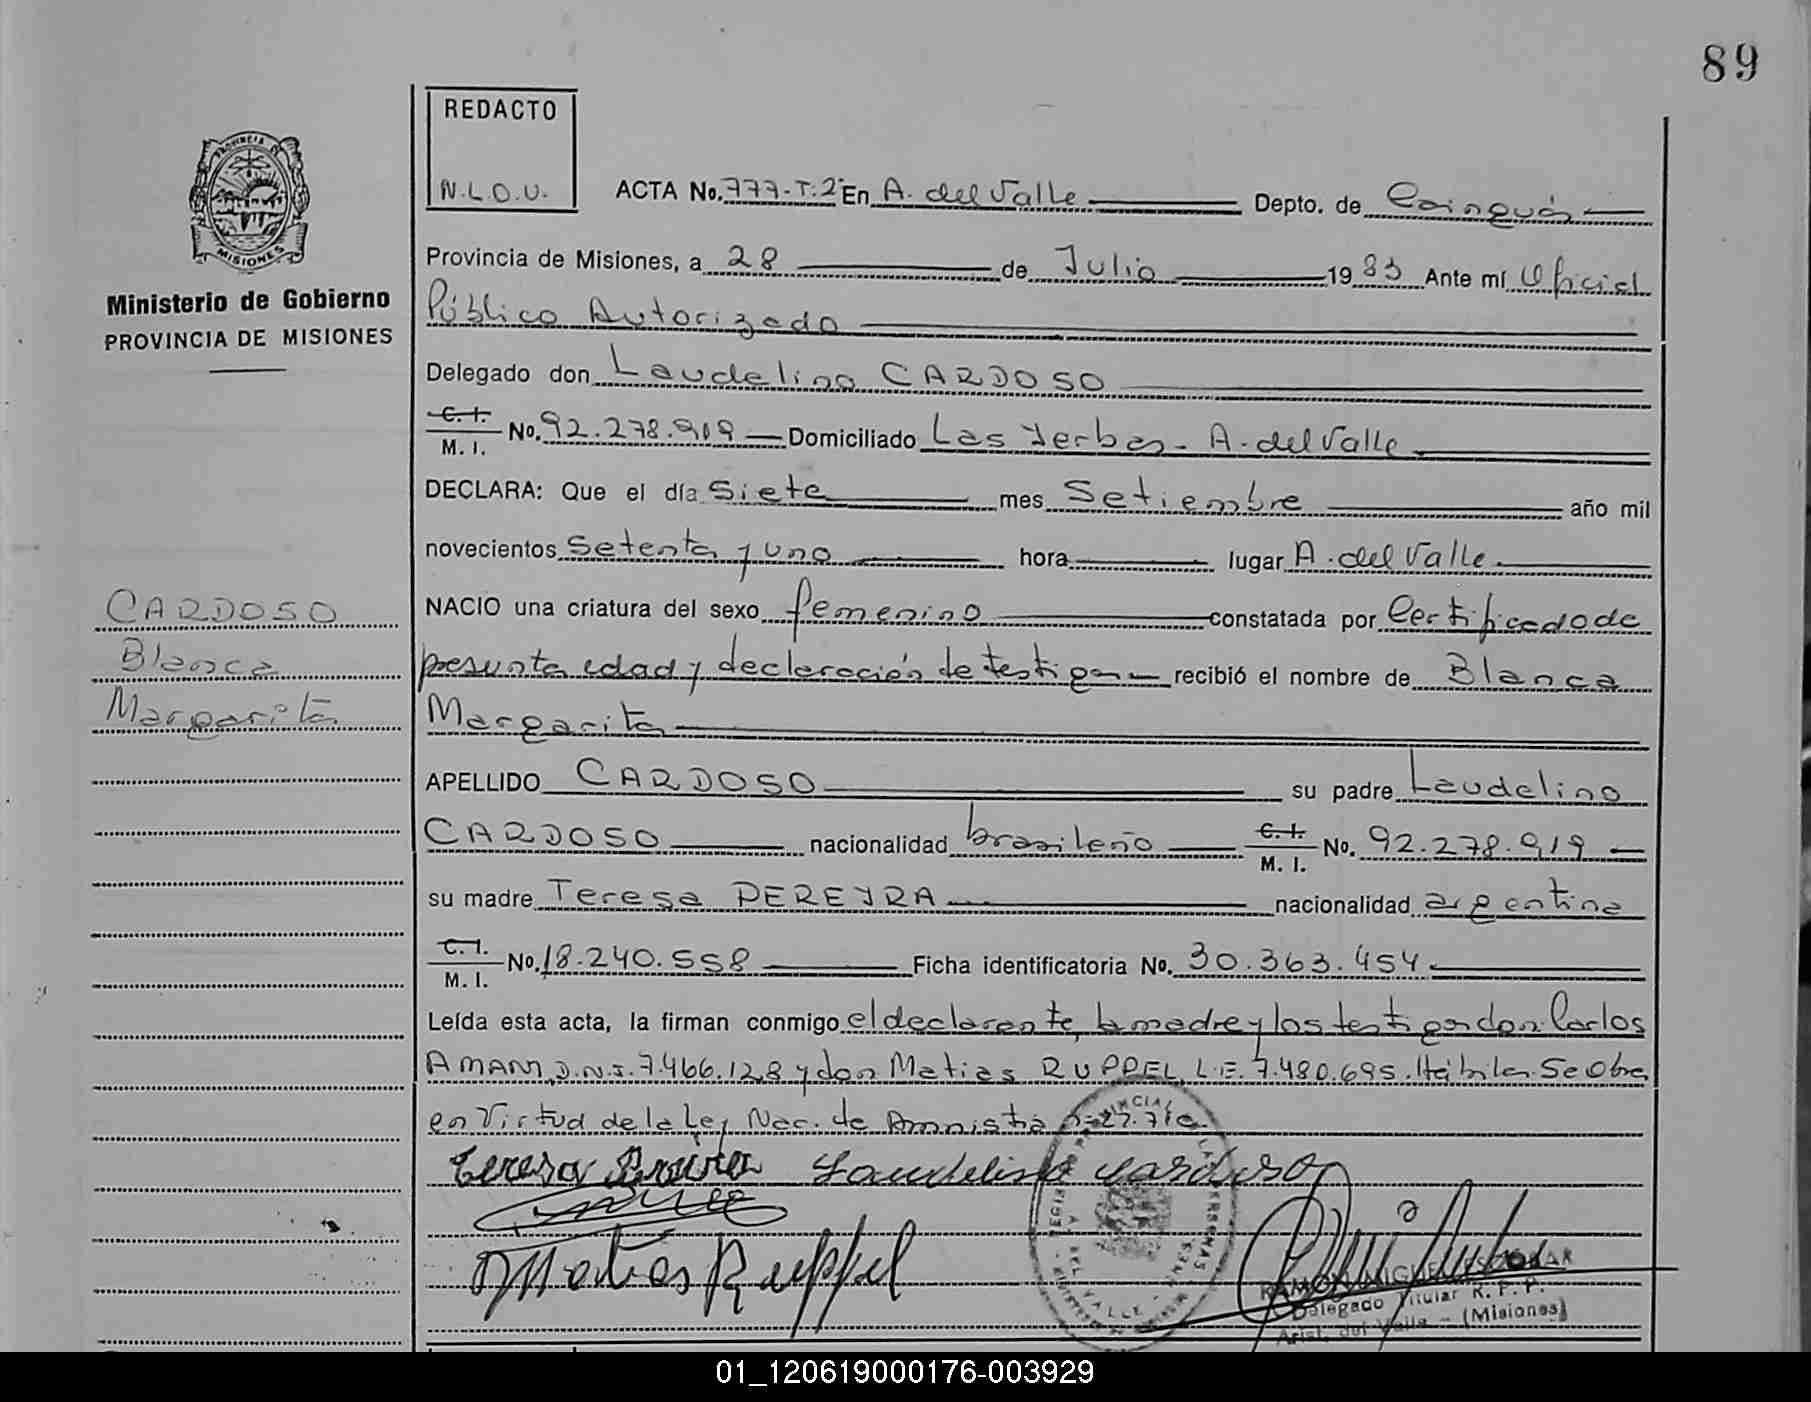 89
REDACTO
N.L.O.U.
ACTA No. 777-T:2º En A. del Valle Depto. de Cainguás
PROVINCIA DE
MISIONES
Provincia de Misiones, a 28 de Julio 1983 Ante mí Oficial
Ministerio de Gobierno
Público Autorizado
PROVINCIA DE MISIONES
Delegado don Laudelino CARDOSO
C. I.
M. I. No. 92.278.919 Domiciliado Las Yerbas - A. del Valle
DECLARA: Que el día Siete mes Setiembre año mil
novecientos Setenta y uno hora lugar A. del Valle
CARDOSO
NACIO una criatura del sexo femenino constatada por Certificado de
Blanca
presunta edad y declaración de testigos recibió el nombre de Blanca
Margarita
Margarita
APELLIDO CARDOSO su padre Laudelino
CARDOSO nacionalidad brasileño C. I. M. I. No. 92.278.919
su madre Teresa PEREYRA nacionalidad argentina
C. I.
M. I. No. 18.240.558 Ficha identificatoria No. 30.363.454
Leída esta acta, la firman conmigo el declarante, la madre y los testigos don Carlos
AMANN D.N.I. 7.466.128 y don Matias RUPPEL L.E. 7.480.695. Hábiles. Se Obra
en Virtud de la Ley Nac. de Amnistia
Teresa Laudelino Cardoso
Matias Ruppel
RAMON MIGUEL ESCOBAR
Delegado Titular R. P. P.
Arist. del Valle - (Misiones)
01_120619000176-003929